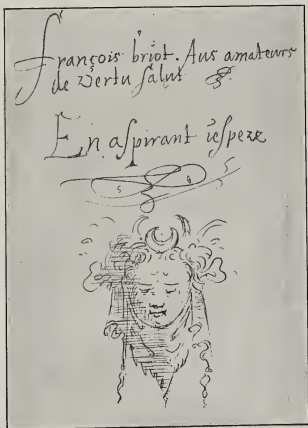 François briot. Aus amateurs
de vertu salut
En aspirant iespere